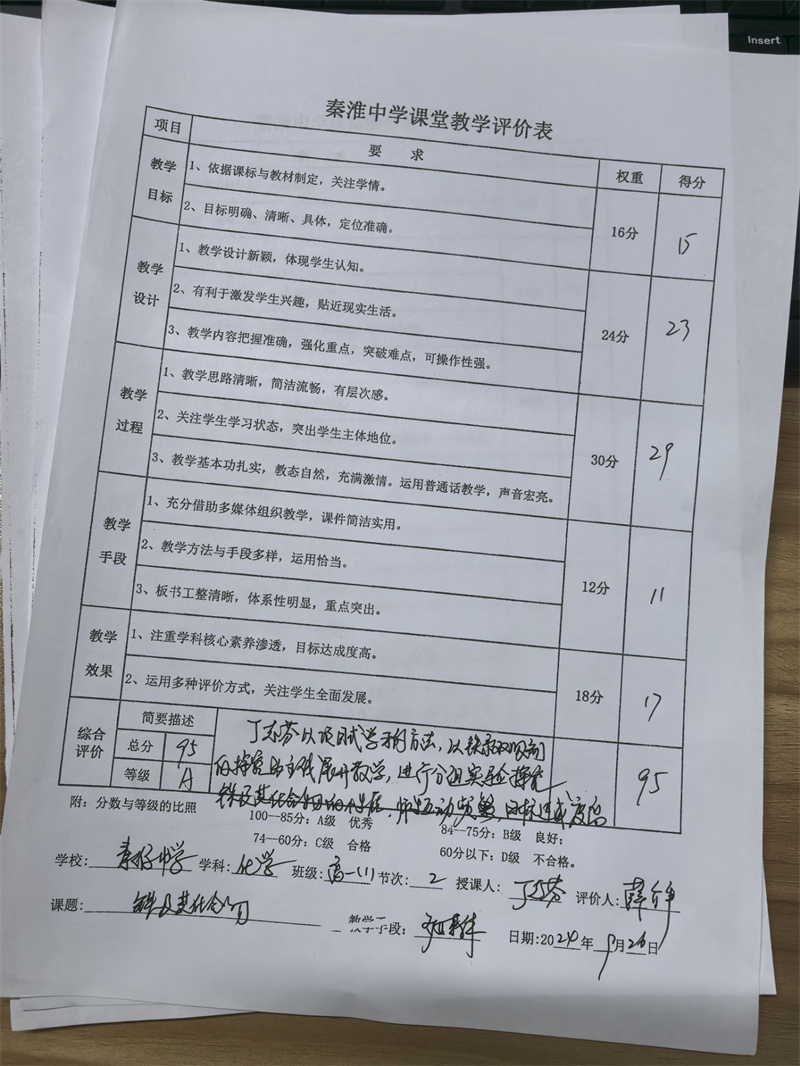 Insert
秦淮中学课堂教学评价表
项目 要 求 权重 得分
教学目标
1、依据课标与教材制定，关注学情。
2、目标明确、清晰、具体，定位准确。
16分 15
教学设计
1、教学设计新颖，体现学生认知。
2、有利于激发学生兴趣，贴近现实生活。
3、教学内容把握准确，强化重点，突破难点，可操作性强。
24分 23
教学过程
1、教学思路清晰，简洁流畅，有层次感。
2、关注学生学习状态，突出学生主体地位。
3、教学基本功扎实，教态自然，充满激情。运用普通话教学，声音宏亮。
30分 29
教学手段
1、充分借助多媒体组织教学，课件简洁实用。
2、教学方法与手段多样，运用恰当。
3、板书工整清晰，体系性明显，重点突出。
12分 11
教学效果
1、注重学科核心素养渗透，目标达成度高。
2、运用多种评价方式，关注学生全面发展。
18分 17
综合评价 简要描述
总分 95
等级 A
以项目式学习的方法，以铁系双吸剂
的探究为主线展开教学，进行分组实验探究
铁及其化合物的性质，师生互动频繁，目标达成度高
95
附：分数与等级的比照
100--85分：A级 优秀 84--75分：B级 良好；
74--60分：C级 合格 60分以下：D级 不合格。
学校：秦淮中学 学科：化学 班级：高一(1) 节次：2 授课人： 评价人：薛
课题：铁及其化合物 教学手段：多媒体 日期：2024年9月26日